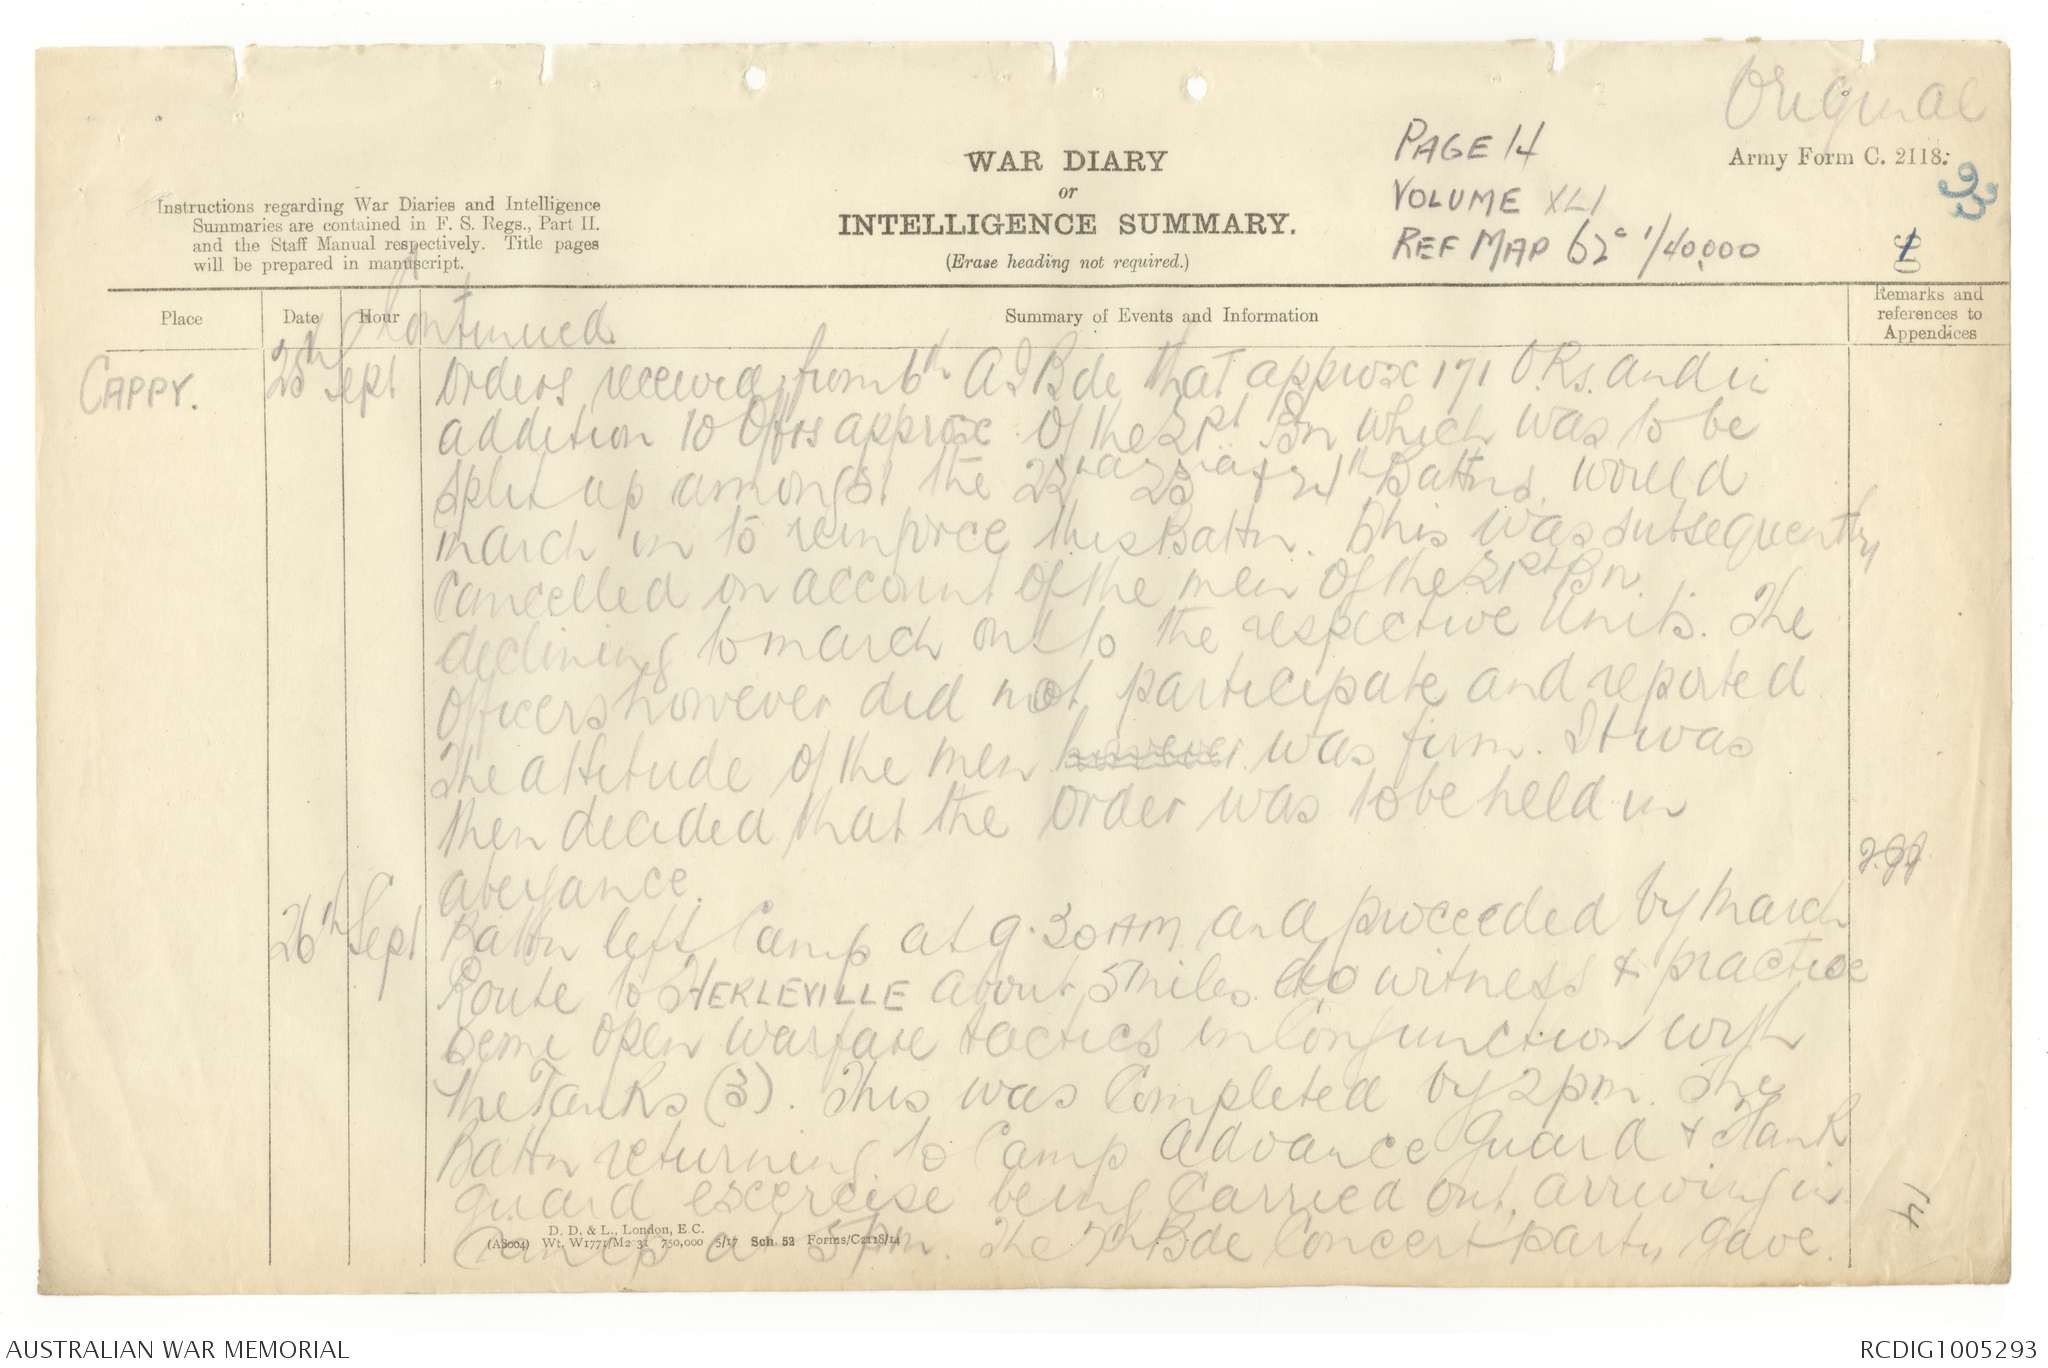 Original
Army Form C. 2118.
WAR DIARY
or
INTELLIGENCE SUMMARY.
(Erase heading not required.)
PAGE 14
VOLUME XLI
REF MAP 62c 1/40,000
Instructions regarding War Diaries and Intelligence
Summaries are contained in F. S. Regs., Part II.
and the Staff Manual respectively. Title pages
will be prepared in manuscript.
Place
Date
Hour
Summary of Events and Information
Remarks and
references to
Appendices
Continued
CAPPY.
25th Sept
Orders received from 6th A I Bde that approx 171 O.Rs. and in
addition 10 Offrs approx of the 21st Bn which was to be
split up amongst the 22nd 23rd & 24th Battns, would
march in to reinforce this Battn. This was subsequently
cancelled on account of the men of the 21st Bn
declining to march out to the respective Units. The
Officers however did not participate and reported
The attitude of the men however was firm. It was
then decided that the order was to be held in
abeyance.
26th Sept
Battn left Camp at 9.30 AM and proceeded by March
Route to HERLEVILLE about 5 miles to witness & practice
semi open warfare tactics in Conjunction with
the Tanks (3). This was Completed by 2pm. The
Battn returning to Camp Advance Guard & Flank
guard excercise being Carried out, arriving in
Camp at 5 pm. The 7th Bde Concert party gave
14
D. D. & L., London, E.C.
(A8004) Wt. W1771/M2 31 750,000 5/17 Sch. 52 Forms/C2118/14
AUSTRALIAN WAR MEMORIAL
RCDIG1005293